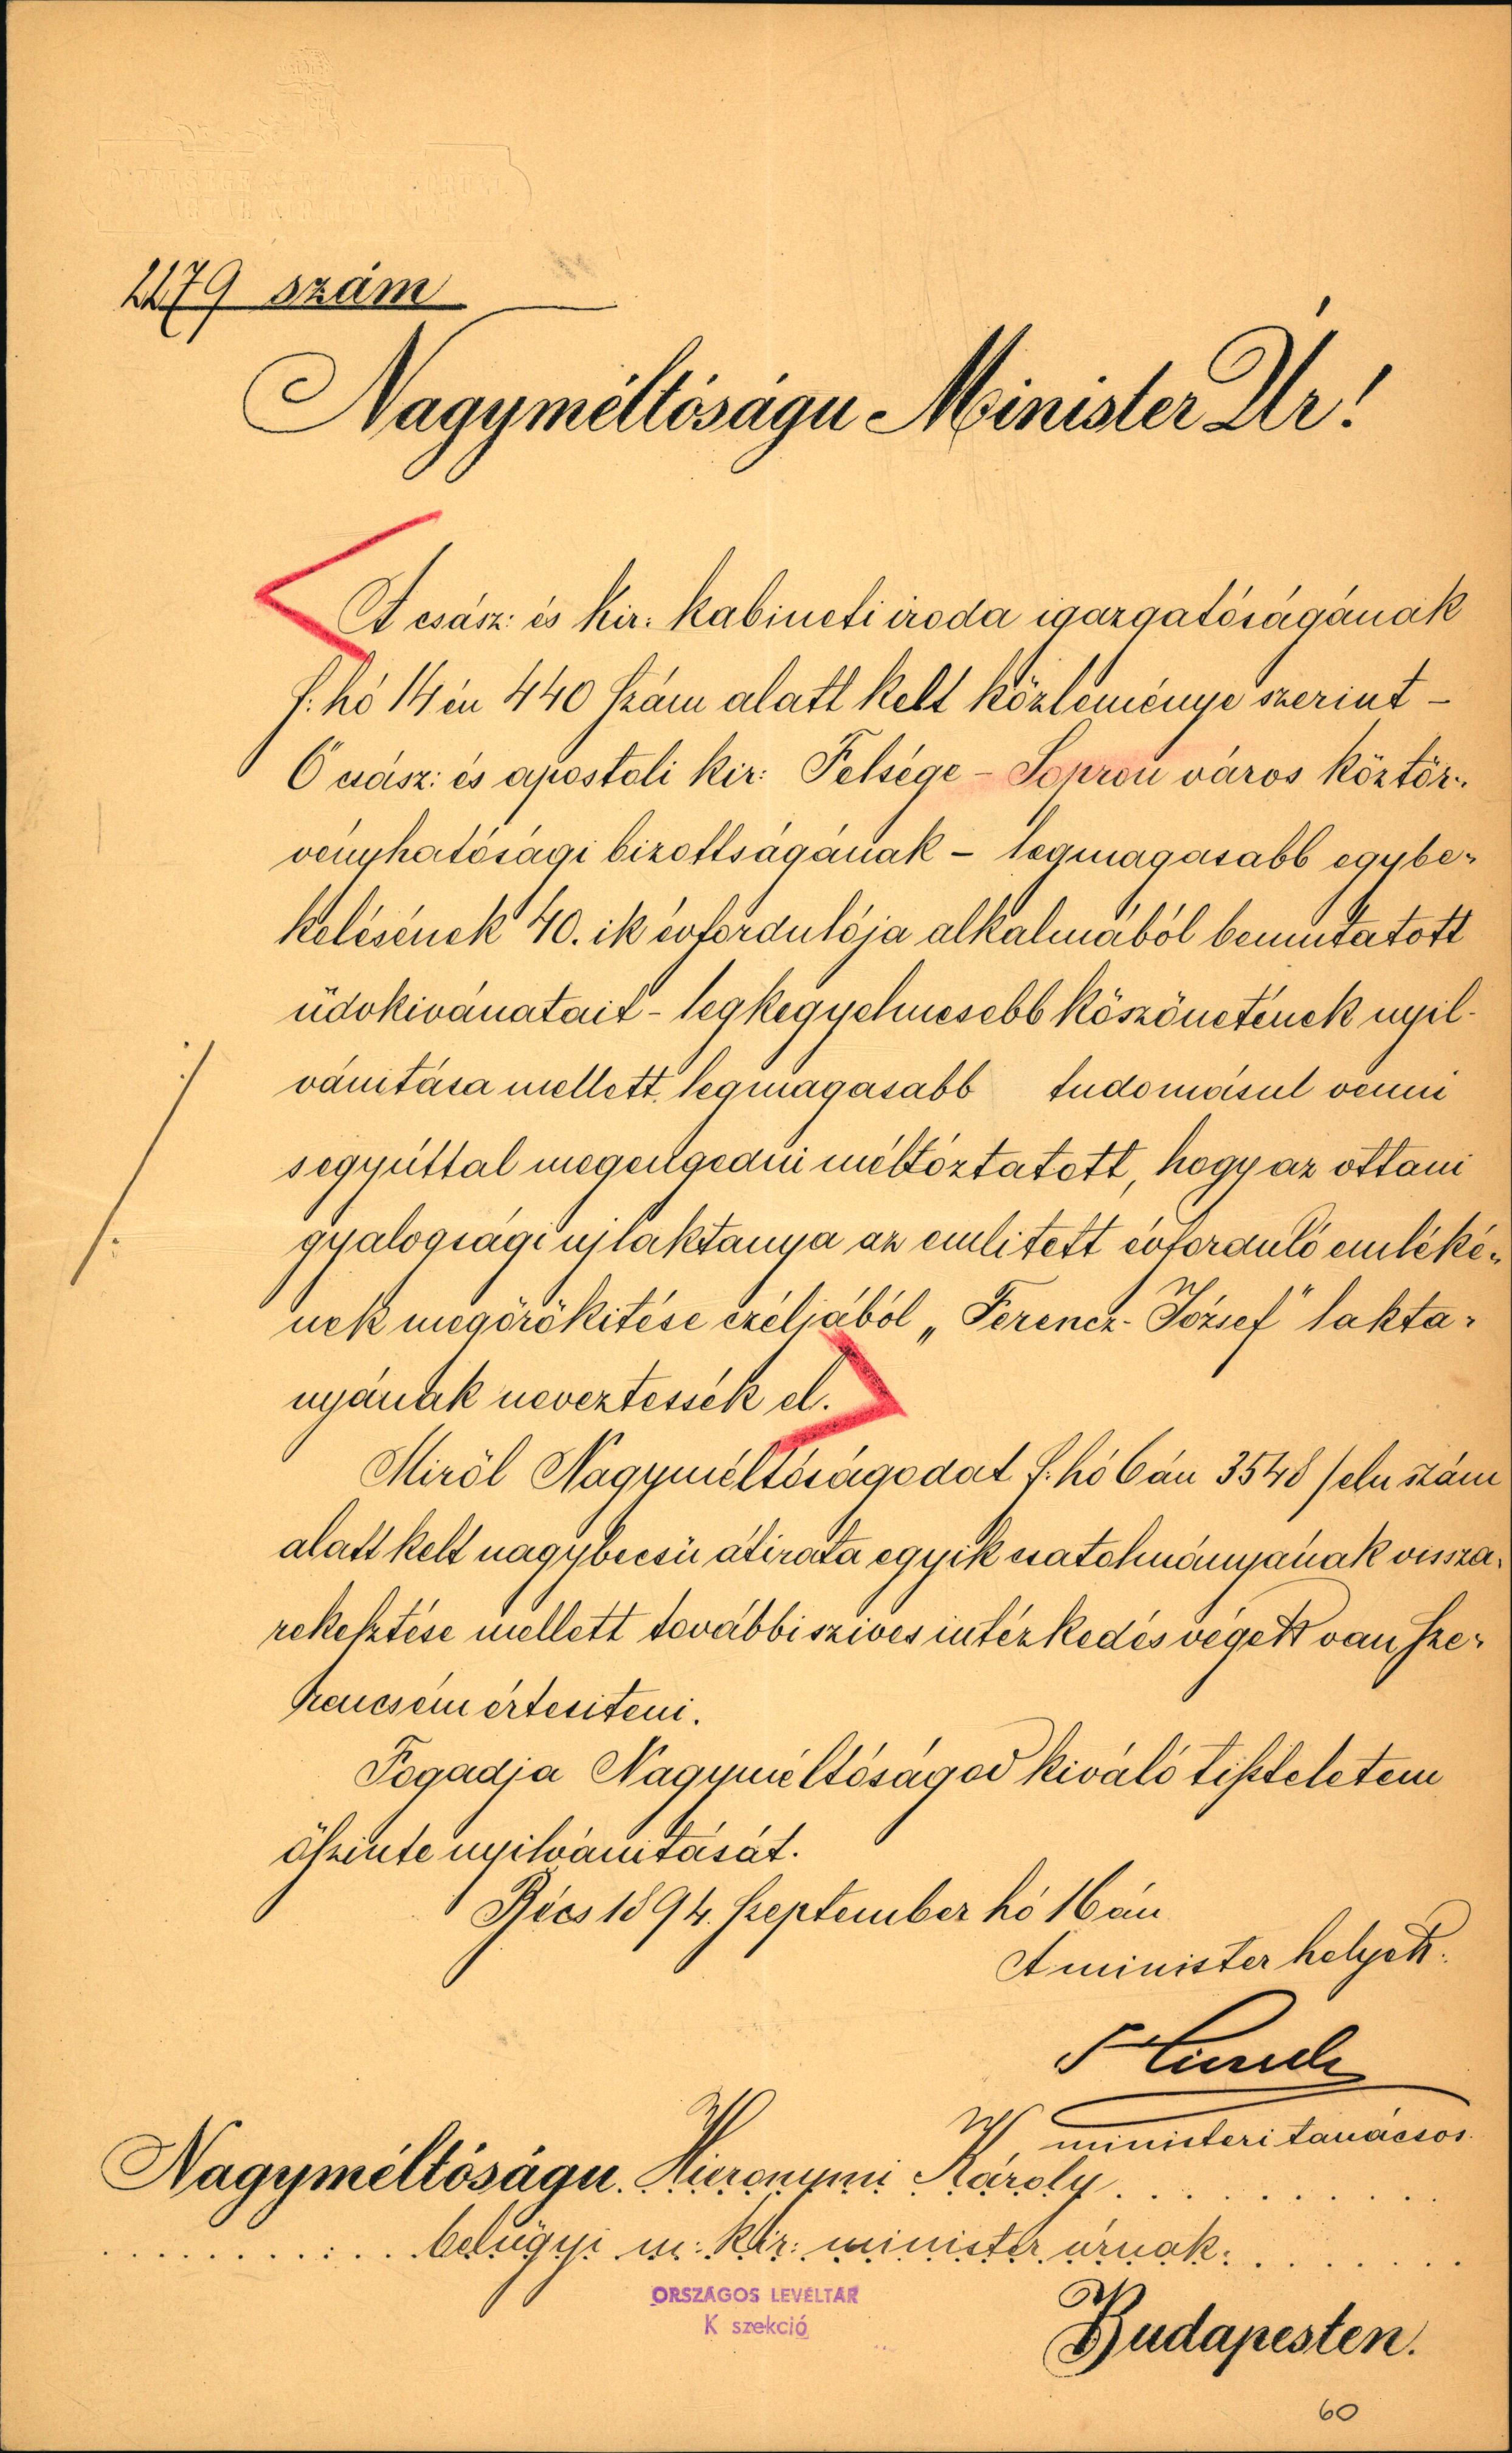 2279 szám
Nagyméltóságu Minister Úr!
A csász: és kir: kabineti iroda igazgatóságának
f. hó 14én 440 szám alatt kelt közleménye szerint –
Ő csász: és apostoli kir: Felsége – Sopron város köztör-
vényhatósági bizottságának – legmagasabb egybe-
kelésének 40. ik évfordulója alkalmából bemutatott
üdvkivánatait – legkegyelmesebb köszönetének nyil-
vánitása mellett legmagasabb tudomásul venni
s egyúttal megengedni méltóztatott, hogy az ottani
gyalogsági uj laktanya az emlitett évforduló emléké-
nek megörökitése czéljából „Ferencz-József" lakta-
nyának neveztessék el.
Miről Nagyméltóságodat f. hó 6án 3548/eln szám
alatt kelt nagybecsü átirata egyik csatolmányának vissza-
rekesztése mellett további szives intézkedés végett van sze-
rencsém értesiteni.
Fogadja Nagyméltóságod kiváló tiszteletem
őszinte nyilvánitását.
Bécs 1894. szeptember hó 16án
A minister helyett:
ministeri tanácsos.
Nagyméltóságu Hieronymi Károly
belügyi m: kir: minister úrnak.
ORSZÁGOS LEVÉLTÁR
K szekció
Budapesten.
60